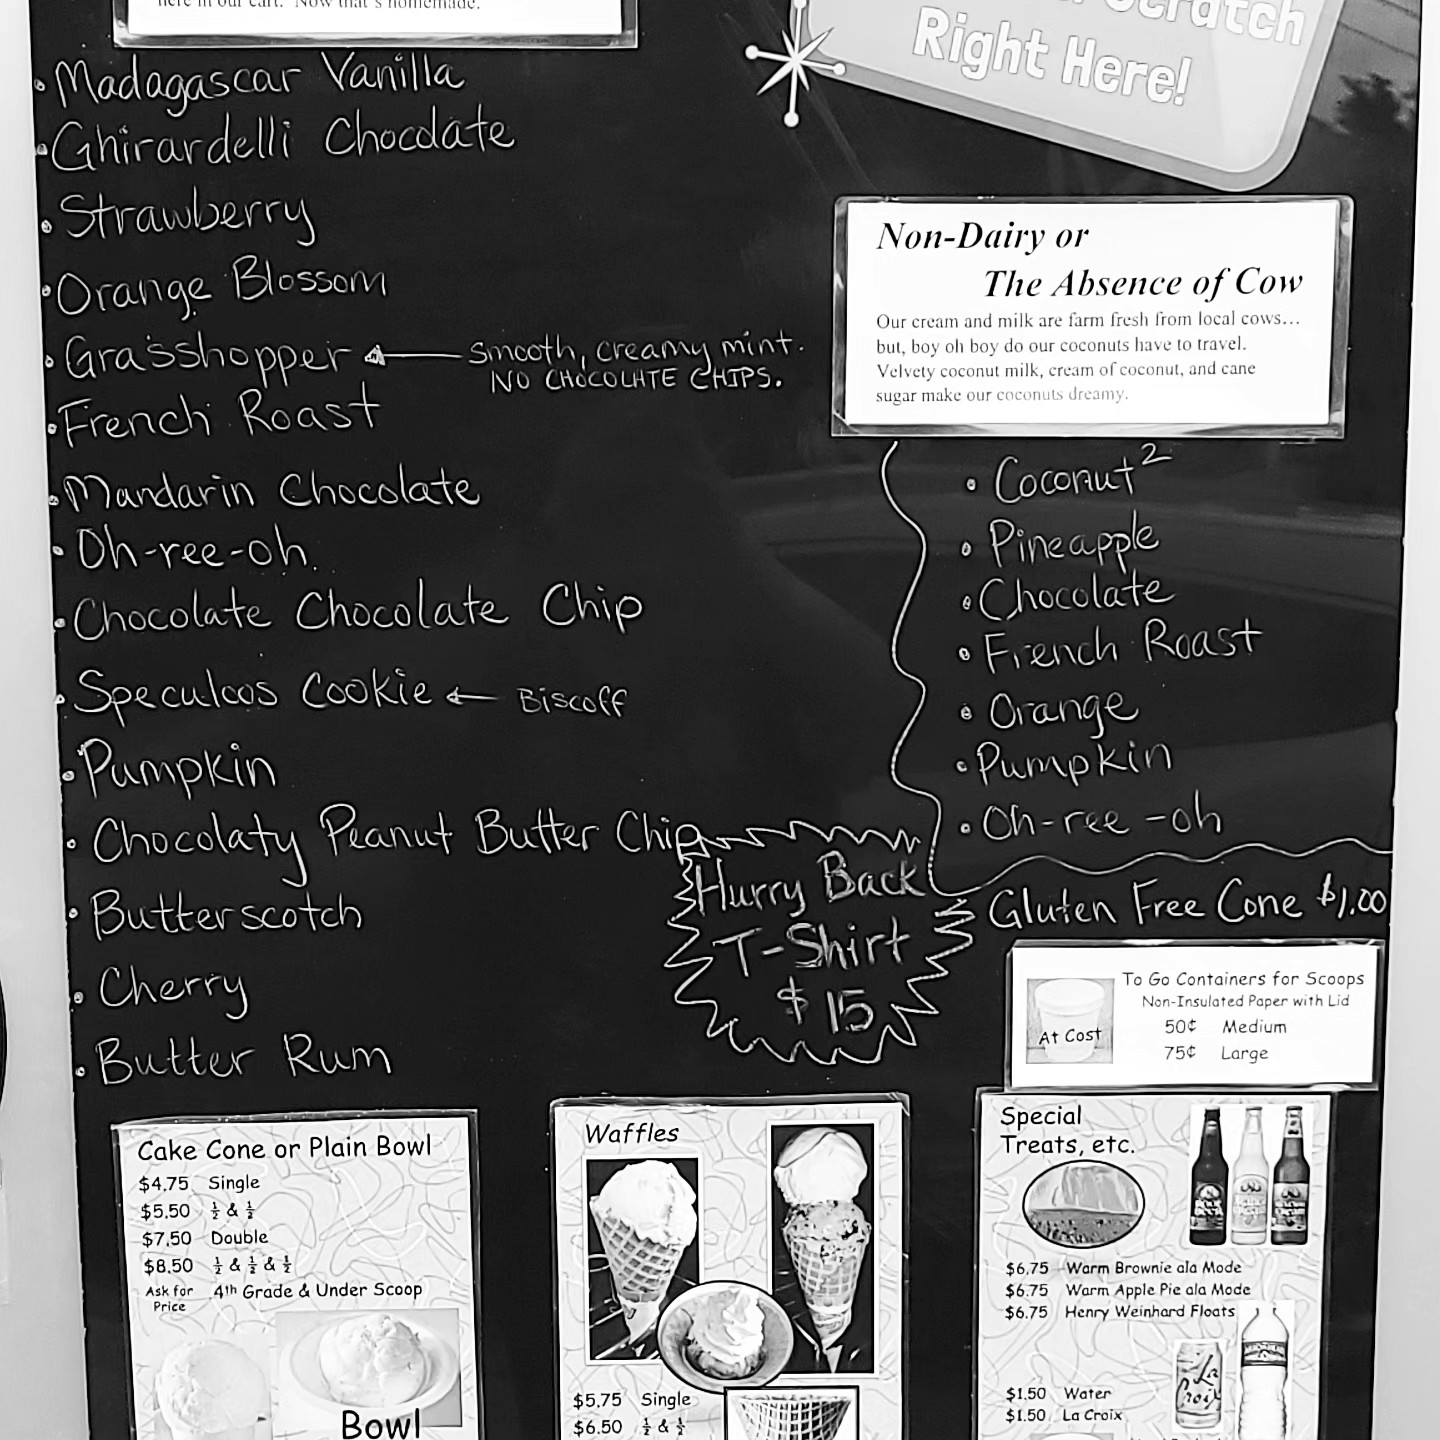 here in our cart. Now that's homemade.
Scratch
Right Here!
Madagascar Vanilla
Ghirardelli Chocolate
Strawberry
Orange Blossom
Grasshopper
smooth, creamy mint.
NO CHOCOLATE CHIPS.
French Roast
Mandarin Chocolate
Oh-ree-oh.
Chocolate Chocolate Chip
Speculoos Cookie
Biscoff
Pumpkin
Chocolaty Peanut Butter Chip
Butterscotch
Cherry
Butter Rum
Non-Dairy or
The Absence of Cow
Our cream and milk are farm fresh from local cows...
but, boy oh boy do our coconuts have to travel.
Velvety coconut milk, cream of coconut, and cane
sugar make our coconuts dreamy.
Coconut²
Pineapple
Chocolate
French Roast
Orange
Pumpkin
Oh-ree-oh
Hurry Back
T-Shirt
$15
Gluten Free Cone $1.00
To Go Containers for Scoops
Non-Insulated Paper with Lid
At Cost
50¢ Medium
75¢ Large
Cake Cone or Plain Bowl
$4.75 Single
$5.50 ½ & ½
$7.50 Double
$8.50 ½ & ½ & ½
Ask for Price 4th Grade & Under Scoop
Bowl
Waffles
$5.75 Single
$6.50 ½ & ½
Special
Treats, etc.
$6.75 Warm Brownie ala Mode
$6.75 Warm Apple Pie ala Mode
$6.75 Henry Weinhard Floats
$1.50 Water
$1.50 La Croix
La
Croix